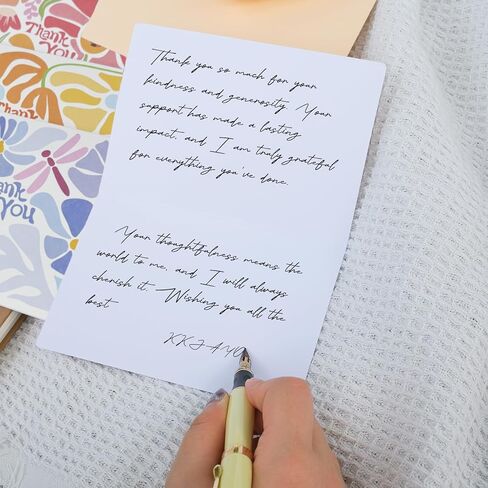 Thank
YOU
Thank
Thank
You
Thank you so much for your
kindness and generosity. Your
support has made a lasting
impact, and I am truly grateful
for everything you've done.
Your thoughtfulness means the
world to me, and I will always
cherish it. Wishing you all the
best
KKJAMO